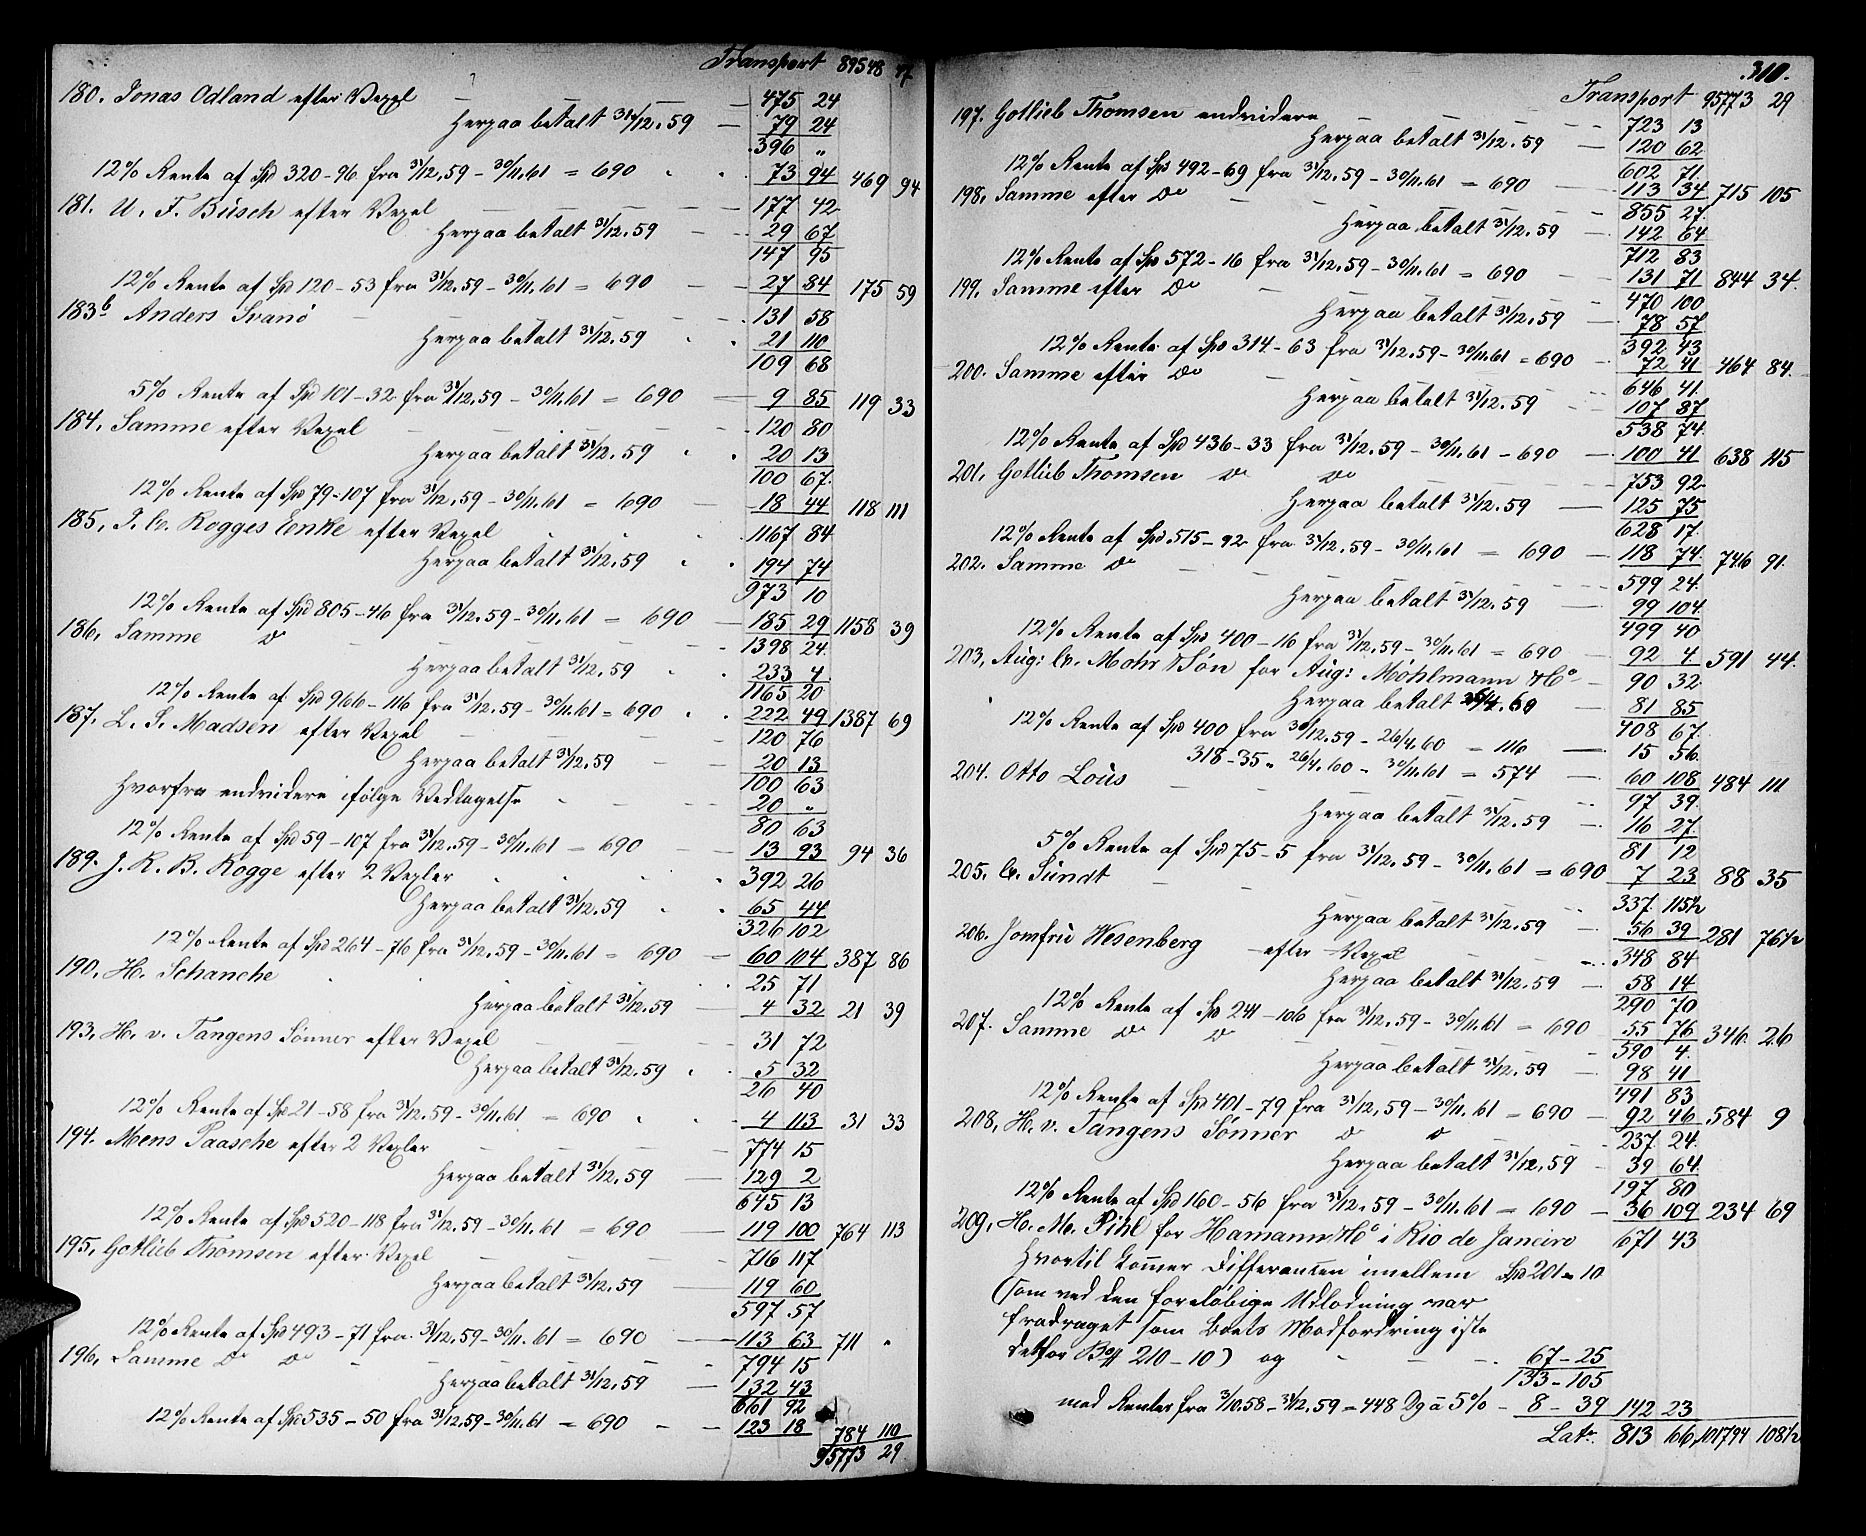 Transport 89548 47
180. Jonas Odland efter Vexel 475 24
Herpaa betalt 31/12.59 79 24
396 "
12% Rente af Spd 320-96 fra 31/12.59 - 30/11.61 = 690 73 94 469 94
181. U. F. Büsch efter Vexel 177 42
Herpaa betalt 31/12.59 29 67
147 95
12% Rente af Spd 120-53 fra 31/12.59 - 30/11.61 = 690 27 84 175 59
183b Anders Svanö 131 58
Herpaa betalt 31/12.59 21 110
109 68
5% Rente af Spd 101-32 fra 31/12.59 - 30/11.61 = 690 9 85 119 33
184. Samme efter Vexel 120 80
Herpaa betalt 31/12.59 20 13
100 67
12% Rente af Spd 79-107 fra 31/12.59 - 30/11.61 = 690 18 44 118 111
185. Rogges Enke efter Vexel 1167 84
Herpaa betalt 31/12.59 194 74
973 10
12% Rente af Spd 805-46 fra 31/12.59 - 30/11.61 = 690 185 29 1158 39
186. Samme Do 1398 24
Herpaa betalt 31/12.59 233 4
1165 20
12% Rente af Spd 966-116 fra 31/12.59 - 30/11.61 = 690 222 49 1387 69
187. L. S. Madsen efter Vexel 120 76
Herpaa betalt 31/12.59 20 13
100 63
Hvorfra endvidere ifölge Vedtagelse 20 "
80 63
12% Rente af Spd 59-107 fra 31/12.59 - 30/11.61 = 690 13 93 94 36
189. J. R. B. Rogge efter 2 Vexler 392 26
Herpaa betalt 31/12.59 65 44
326 102
12% Rente af Spd 264-76 fra 31/12.59 - 30/11.61 = 690 60 104 387 86
190. H. Schanche 25 71
Herpaa betalt 31/12.59 4 32 21 39
193. H. v. Tangens Sönner efter Vexel 31 72
Herpaa betalt 31/12.59 5 32
26 40
12% Rente af Spd 21-58 fra 31/12.59 - 30/11.61 = 690 4 113 31 33
194. Mens Paasche efter 2 Vexler 774 15
Herpaa betalt 31/12.59 129 2
645 13
12% Rente af Spd 520-118 fra 31/12.59 - 30/11.61 = 690 119 100 764 113
195. Gotlieb Thomsen efter Vexel 716 117
Herpaa betalt 31/12.59 119 60
597 57
12% Rente af Spd 493-71 fra 31/12.59 - 30/11.61 = 690 113 63 711 "
196. Samme Do Do 794 15
Herpaa betalt 31/12.59 132 43
661 92
12% Rente af Spd 535-50 fra 31/12.59 - 30/11.61 = 690 123 18 784 110
95773 29
310.
Transport 95773 29
197. Gotlieb Thomsen endvidere 723 13
Herpaa betalt 31/12.59 120 62
602 71
12% Rente af Spd 492-69 fra 31/12.59 - 30/11.61 = 690 113 34 715 105
198. Samme efter Do 855 27
Herpaa betalt 31/12.59 142 64
712 83
12% Rente af Spd 572-16 fra 31/12.59 - 30/11.61 = 690 131 71 844 34
199. Samme efter Do 470 100
Herpaa betalt 31/12.59 78 57
392 43
12% Rente af Spd 314-63 fra 31/12.59 - 30/11.61 = 690 72 41 464 84
200. Samme efter Do 646 41
Herpaa betalt 31/12.59 107 87
538 74
12% Rente af Spd 436-33 fra 31/12.59 - 30/11.61 - 690 100 41 638 115
201. Gotlieb Thomsen Do Do 753 92
Herpaa betalt 31/12.59 125 75
628 17
12% Rente af Spd 515-92 fra 31/12.59 - 30/11.61 = 690 118 74 746 91
202. Samme Do 599 24
Herpaa betalt 31/12.59 99 104
499 40
12% Rente af Spd 400-16 fra 31/12.59 - 30/11.61 = 690 92 4 591 44
203. Aug: C. Mohr & Sön for Aug: Möhlmann & Co 490 32
Herpaa betalt 26/4.60 81 85
408 67
12% Rente af Spd 400 fra 30/12.59 - 26/4.60 = 116 15 56
318-35 " 26/4.60 - 30/11.61 = 574 60 108 484 111
204. Otto Loüs 97 39
Herpaa betalt 31/12.59 16 27
81 12
5% Rente af Spd 75-5 fra 31/12.59 - 30/11.61 = 690 7 23 88 35
205. C. Sundt 337 115½
Herpaa betalt 31/12.59 56 39 281 76½
206. Jomfrü Wesenberg efter Vexel 348 84
Herpaa betalt 31/12.59 58 14
290 70
12% Rente af Spd 241-106 fra 31/12.59 - 30/11.61 = 690 55 76 346 26
207. Samme Do Do 590 4
Herpaa betalt 31/12.59 98 41
491 83
12% Rente af Spd 401-79 fra 31/12.59 - 30/11.61 = 690 92 46 584 9
208. H. v. Tangens Sönner Do Do 237 24
Herpaa betalt 31/12.59 39 64
197 80
12% Rente af Spd 160-56 fra 31/12.59 - 30/11.61 = 690 36 109 234 69
209. H. M. Pihl for Hamann & Co i Rio de Janeiro 671 43
Hvortil kommer Differansen imellem Spd 201-10
(som ved den foreløbige Udlodning var
fradraget som Boets Modfordring iste
detfor Bco# 210-10) og 67-25
133-105
med Renter fra 3/10.58 - 31/12.59 = 448 Dg a 5% - 8-39 142 23
Latr. 813 66 101794 108½